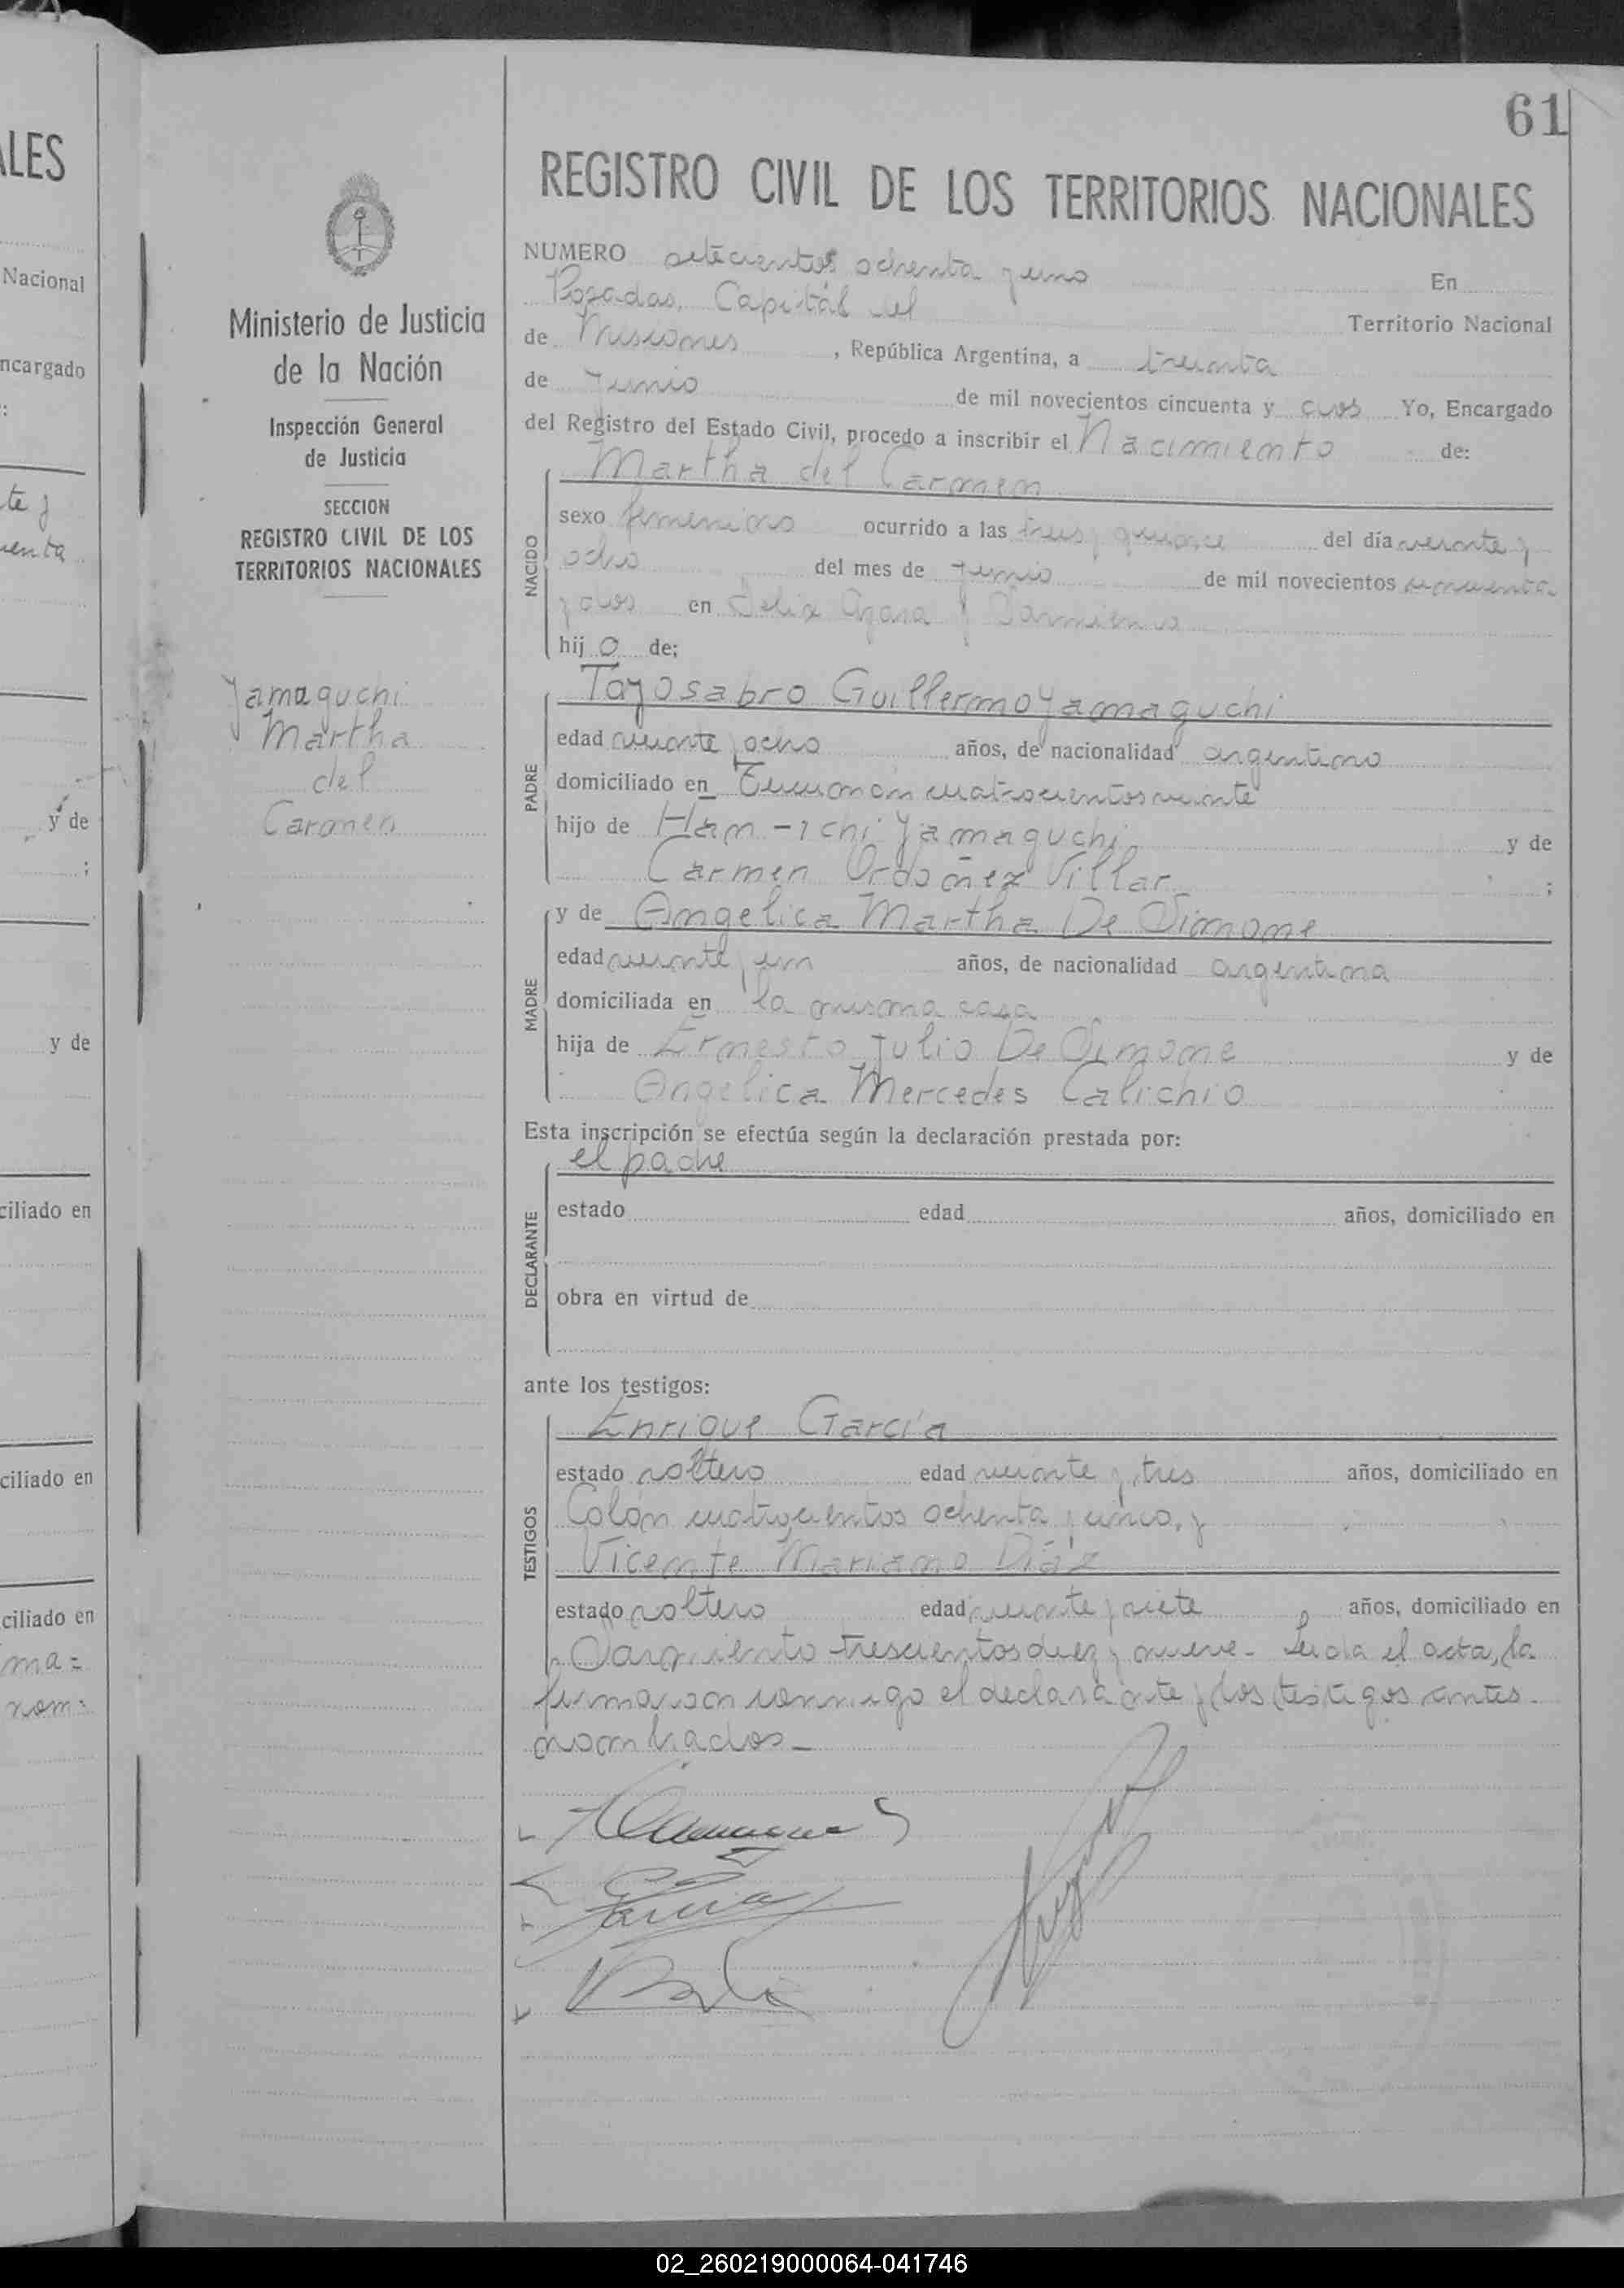 ALES
Nacional
ncargado
:
te y
uenta
y de
;
y de
ciliado en
ciliado en
ciliado en
ma=
nom:
Ministerio de Justicia
de la Nación
Inspección General
de Justicia
SECCION
REGISTRO CIVIL DE LOS
TERRITORIOS NACIONALES
Yamaguchi
Martha
del
Carmen
61
REGISTRO CIVIL DE LOS TERRITORIOS NACIONALES
NUMERO setecientos ochenta y uno En
Posadas, Capitál del Territorio Nacional
de Misiones, República Argentina, a treinta
de Junio de mil novecientos cincuenta y dos Yo, Encargado
del Registro del Estado Civil, procedo a inscribir el Nacimiento de:
Martha del Carmen
NACIDO
sexo femenino ocurrido a las tres y quince del día veinte y
ocho del mes de Junio de mil novecientos cincuenta
y dos en Felix Azara y Sarmiento
hij o de;
PADRE
Tayosabro Guillermo Yamaguchi
edad veinte y ocho años, de nacionalidad argentino
domiciliado en Tucumán cuatrocientos veinte
hijo de Han-ichi Yamaguchi y de
Carmen Ordoñez Villar ;
MADRE
y de Angelica Martha De Simone
edad veinte y un años, de nacionalidad argentina
domiciliada en la misma casa
hija de Ernesto Julio De Simone y de
Angelica Mercedes Calichio
Esta inscripción se efectúa según la declaración prestada por:
el padre
DECLARANTE
estado edad años, domiciliado en
obra en virtud de
ante los testigos:
TESTIGOS
Enrique García
estado soltero edad veinte y tres años, domiciliado en
Colón cuatrocientos ochenta y cinco, y
Vicente Mariano Diáz
estado soltero edad veinte y siete años, domiciliado en
Sarmiento trescientos diez y nueve.- Leida el acta, la
firmaron conmigo el declarante y los testigos antes
nombrados.-
García
02_260219000064-041746